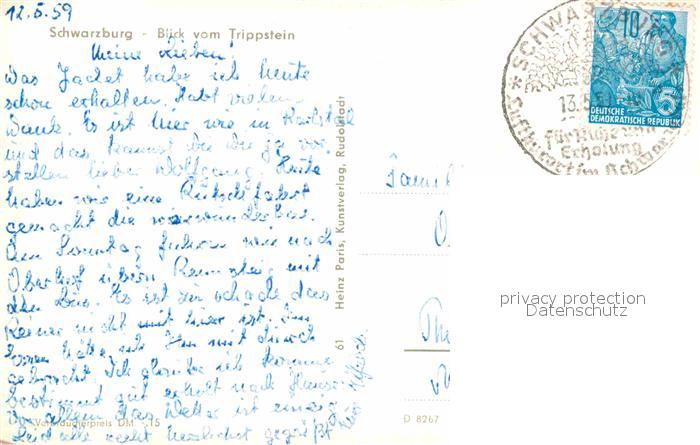 12.5.59
Schwarzburg - Blick vom Trippstein
Meine Lieben!
Das Jacket habe ich heute
schon erhalten. Habt vielen
Dank. Es ist hier wie in
und das kannst du dir ja vor
stellen lieber Wolfgang. Heute
haben wir eine Kutschfahrt
gemacht die war wunderbar.
Am Sonntag fuhren wir nach
Oberhof übern Rennsteig mit
den Bus. Es ist zu schade das
Reiner nicht mit hier ist. Im
hätte ich ihn mit durch
gebracht. Ich glaube ich komme
bestimmt gut erholt nach Hause
vor allem das Wetter ist einzig
Seid alle recht herzlichst gegrüßt
Verbraucherpreis DM -.15
61 Heinz Paris, Kunstverlag, Rudolstadt
SCHWARZBURG
13.5.59
für Ruhe und
Erholung
Luftkurort im Schwarza
10
5
DEUTSCHE
DEMOKRATISCHE REPUBLIK
Famil
O
Th
D 8267
privacy protection
Datenschutz